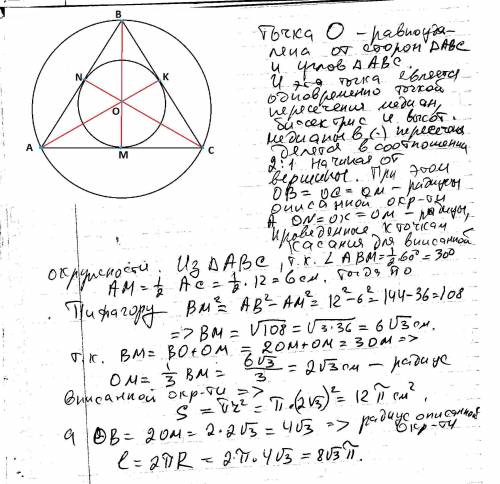 B
N
K
O
A
M
C
Точка О – равноуда-
лена от сторон ΔABC
и углов ΔABC.
И эта точка является
одновременно точкой
пересечения медиан,
биссектрис и высот.
медианы в (·) пересечен
делятся в соотношении
2:1 начиная от
вершины. При этом
OB = OC = OM – радиусы
описанной окр-ти
А ON = OK = OM – радиусы,
проведенные к точкам
касания для вписанной
окружности. Из ΔABC, т.к. ∠ABM = 1/2 60° = 30°
AM = 1/2 AC = 1/2 · 12 = 6 см. Тогда по
Пифагору BM² = AB² – AM² = 12² – 6² = 144 – 36 = 108
=> BM = √108 = √3·36 = 6√3 см.
т.к. BM = BO + OM = 2OM + OM = 3OM =>
OM = 1/3 BM = 6√3/3 = 2√3 см – радиус
вписанной окр-ти =>
S = πr² = π·(2√3)² = 12π см².
а OB = 2OM = 2·2√3 = 4√3 => радиус описанной
окр-ти
l = 2πR = 2·π·4√3 = 8√3π.